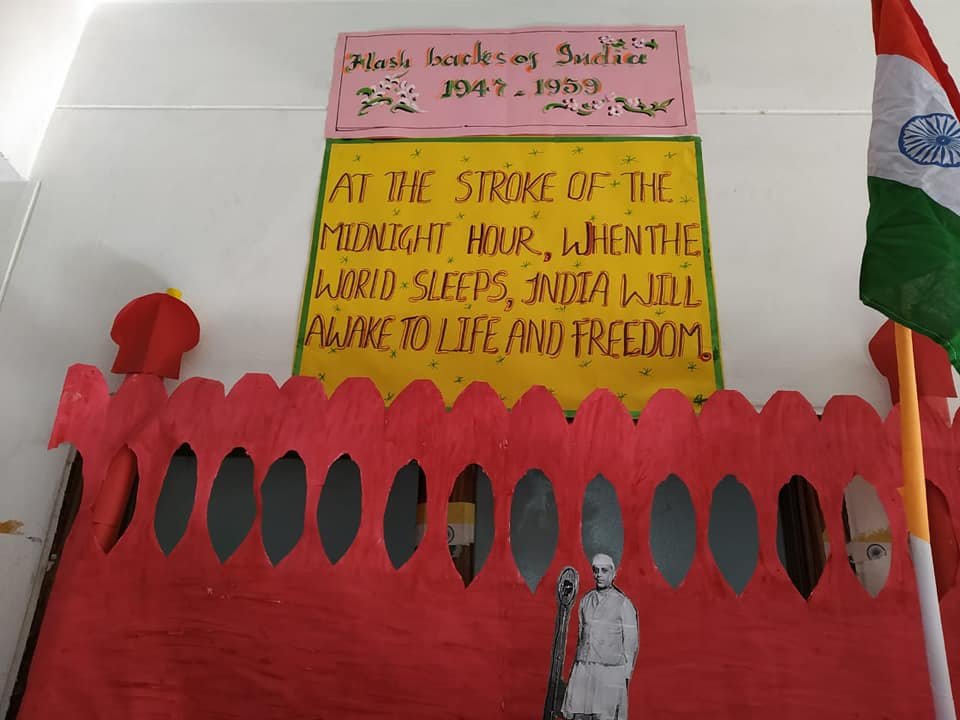 Flash backs of India
1947 - 1959
AT THE STROKE OF THE
MIDNIGHT HOUR, WHEN THE
WORLD SLEEPS, INDIA WILL
AWAKE TO LIFE AND FREEDOM.